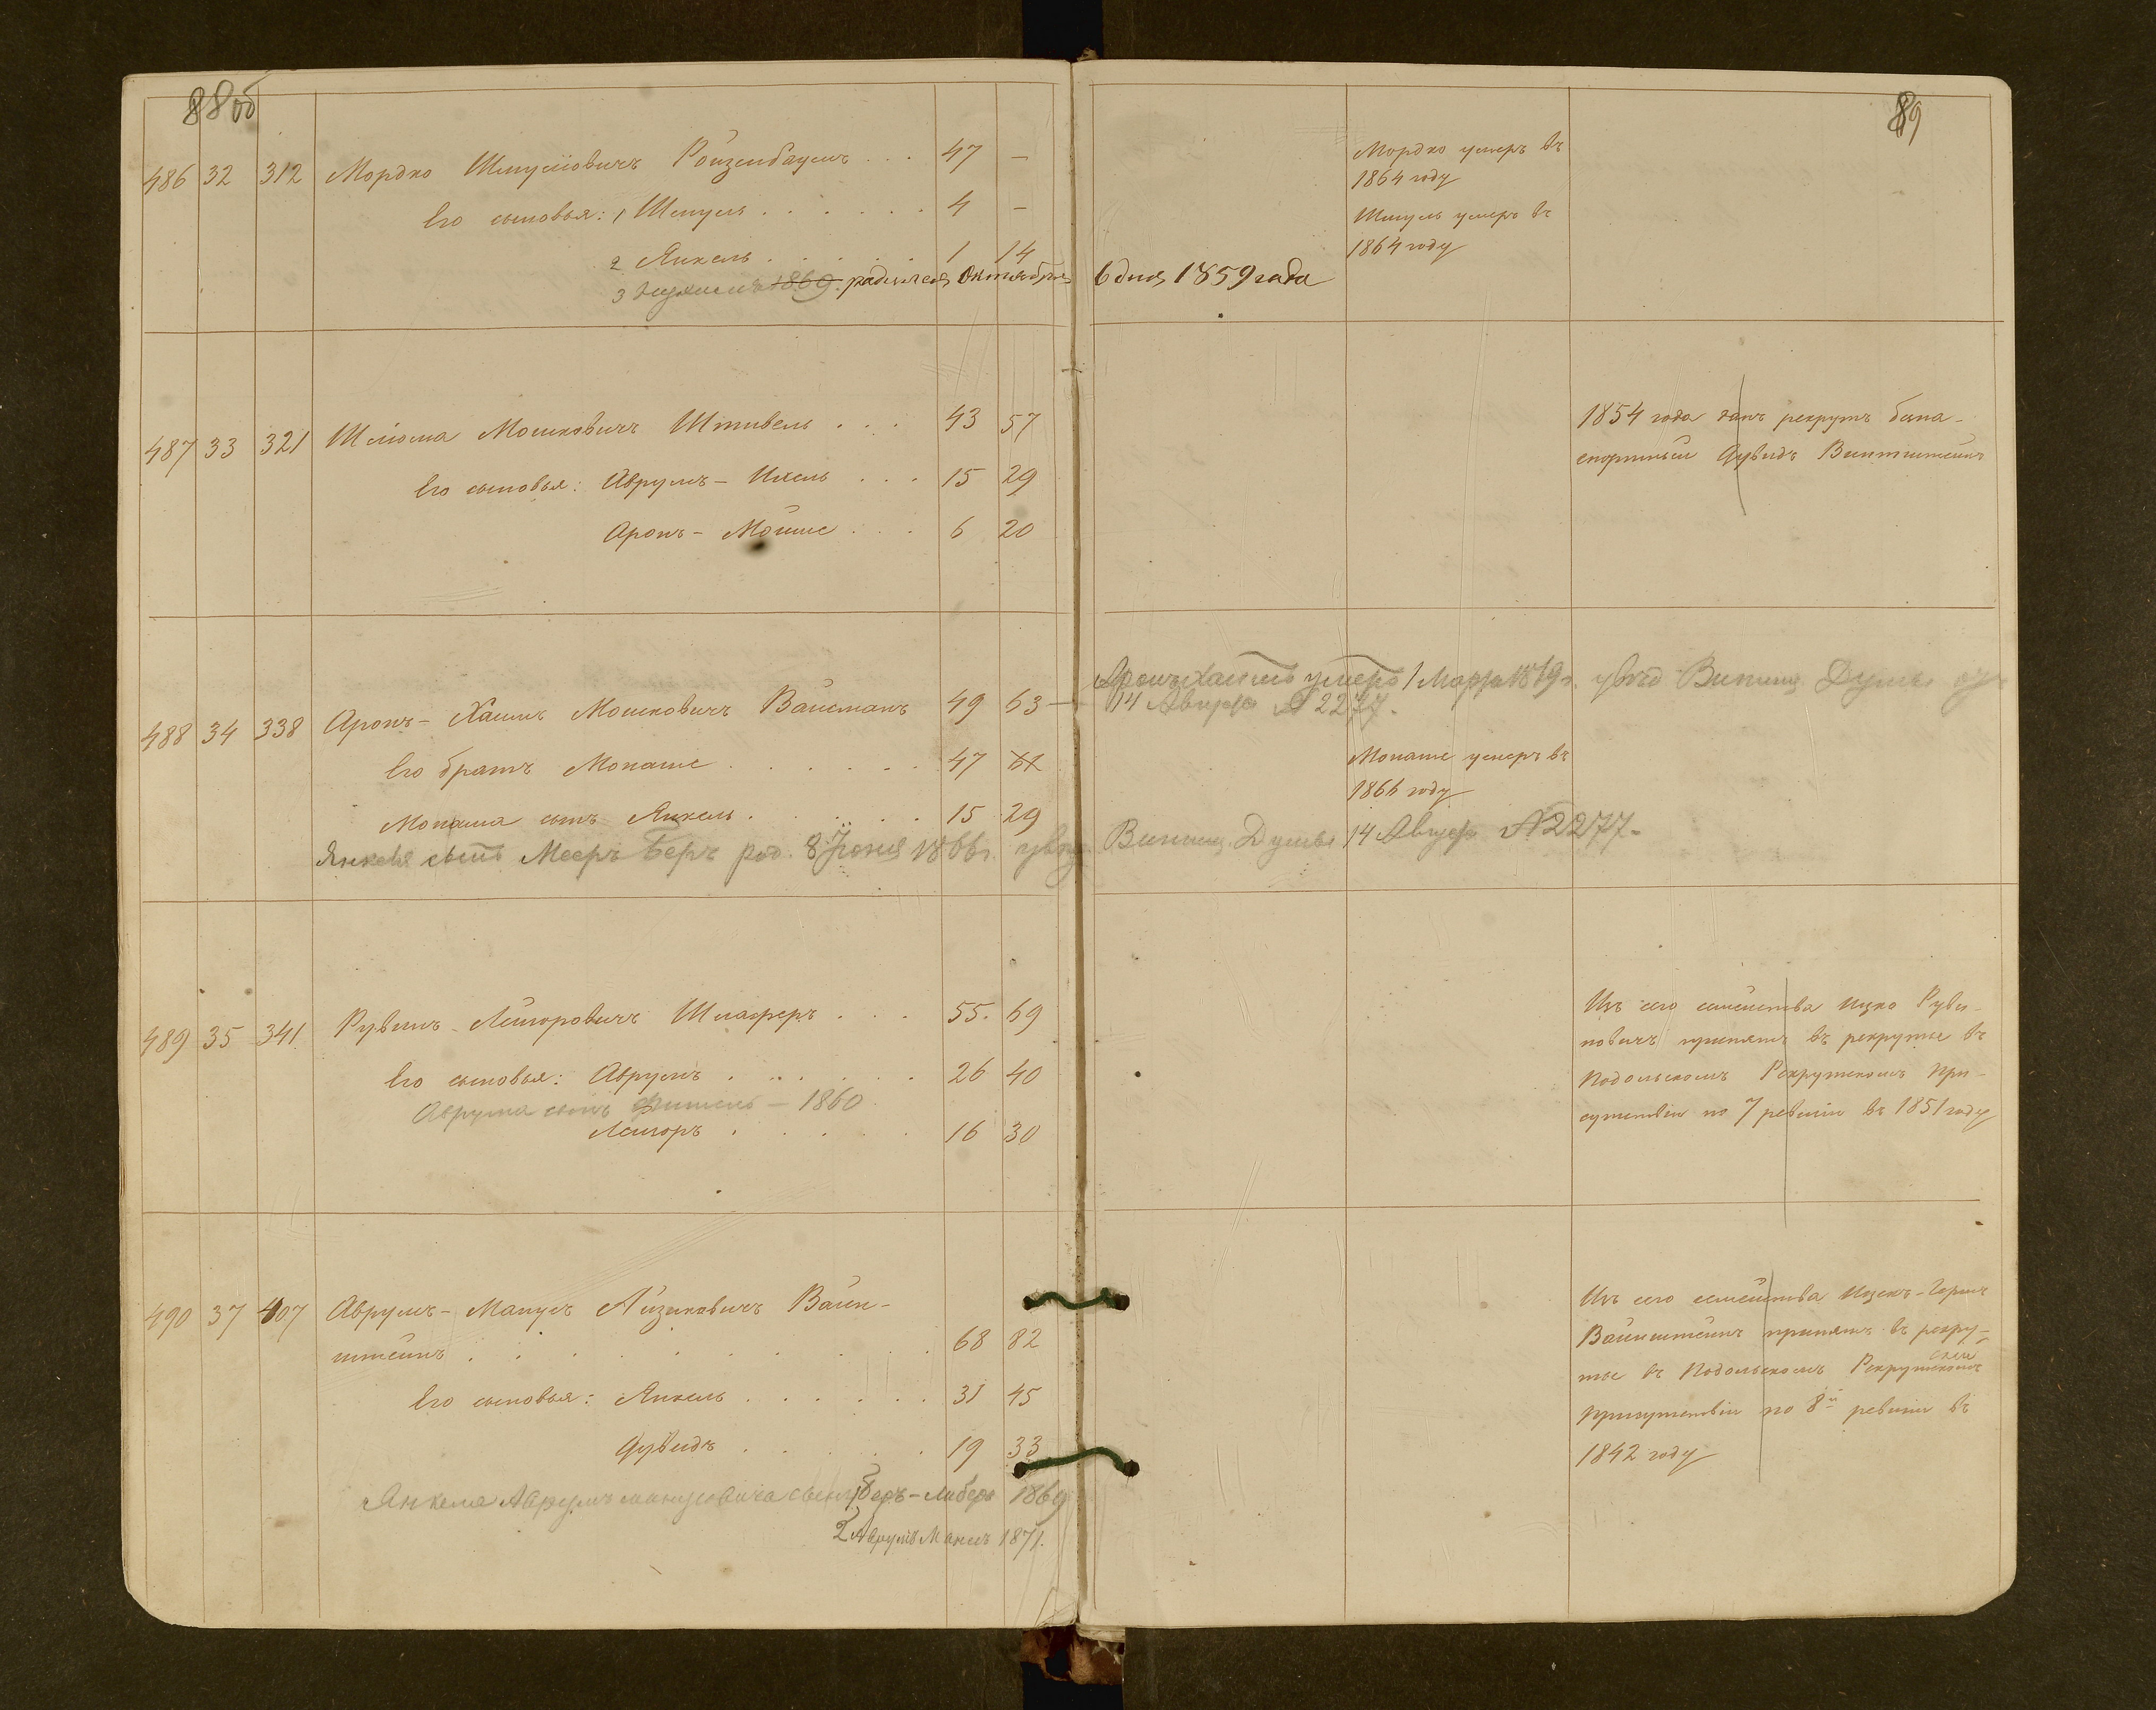 88 об
486 32 312 Мордко Шмулiовичъ Ройзенбаумъ . . . 47 —
Его сыновья: 1, Шмуль . . . . . . 4 —
2 Янкель . . . . . . 1 14
3 1869. радился Октября
487 33 321 Шлiома Мошковичъ Штивель . . . 43 57
Его сыновья: Аврумъ - Ихель . . . 15 29
Аронъ - Мойше . . . 6 20
488 34 338 Аронъ - Хаимъ Мошковичъ Вайсманъ 49 63 —
Его братъ Монаше . . . . . . 47
Монаша сынъ Янкель . . . . . . 15 29
Янкеля сынъ Мееръ Беръ род. 8 Iюня 1866 г.
489 35 341 Рувинъ Лейзоровичъ Шлаферъ . . . 55. 69
Его сыновья: Аврумъ . . . . . . 26 40
Аврума сынъ — 1860
Лейзоръ . . . . . 16 30
490 37 407 Аврумъ - Манусъ Айзиковичъ Вайн-
штейнъ . . . . . . . . . . 68 82
Его сыновья: Янкель . . . . . . 31 45
Дувидъ . . . . . 19 33
Янкеля Аврумъ манусовича сыны 1 Беръ - Либеръ 1869
2 Аврумъ 1871.
89
Мордко умеръ въ
1864 году
Шмуль умеръ въ
1864 году
6 дня 1859 года
1854 года данъ рекрутъ безпа-
спортный Дувидъ
Аронъ Хаимъ умеръ 1 Марта 18 9 г. Винниц. Думы
14 Августа № 2277.
Монаше умеръ въ
1866 году
Винниц. Думы 14 Августа № 2277.
Изъ сего семейства Ицко Руви-
новичъ принятъ въ рекруты въ
Подольскомъ Рекрутскомъ При-
сутствiи по 7 ревизiи въ 1851 году
Изъ сего семейства Ицекъ - Гершъ
Вайнштейнъ принятъ въ рекру-
ты въ Подольскомъ Рекрутскомъ
Присутствiи по 8й ревизiи въ
1842 году